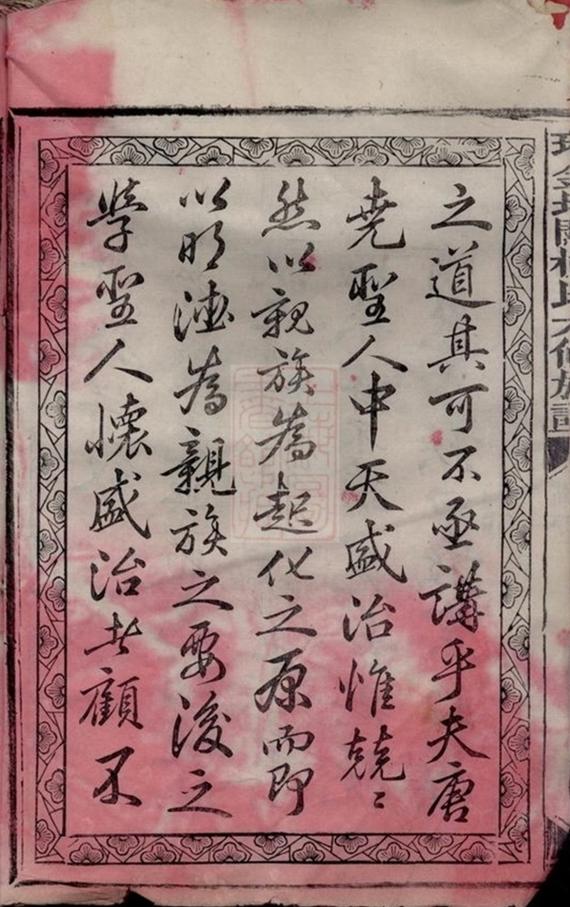 之道其可不亟講乎夫唐
堯聖人中天盛治惟兢〻
然以親族為起化之原而即
以明德為親族之要後之
學聖人懷盛治者顧不